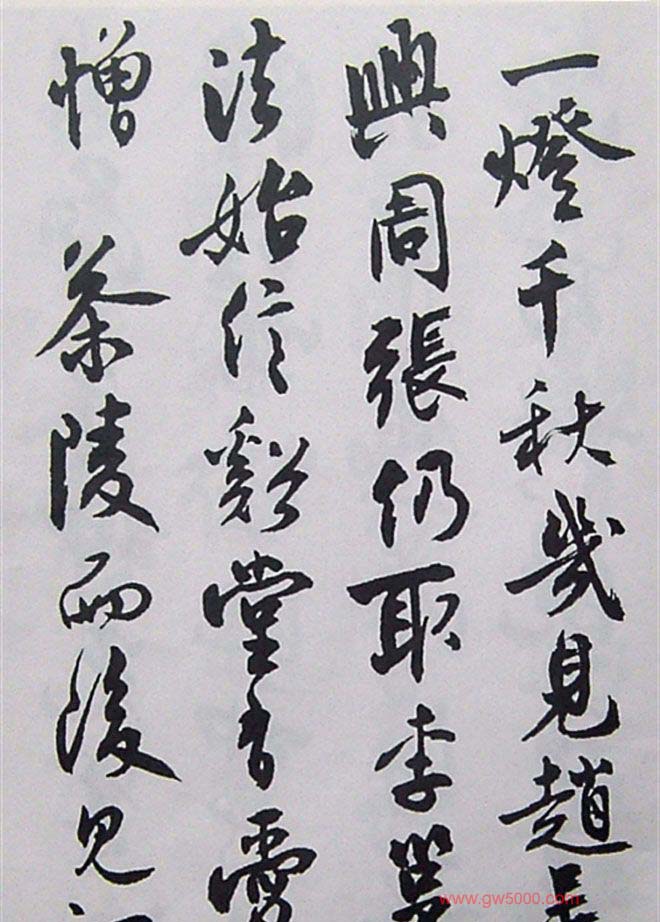 一燈千秋幾見趙
興周張仍取李
法始信谿堂有
憎茶陵而後見
www.gw5000.com